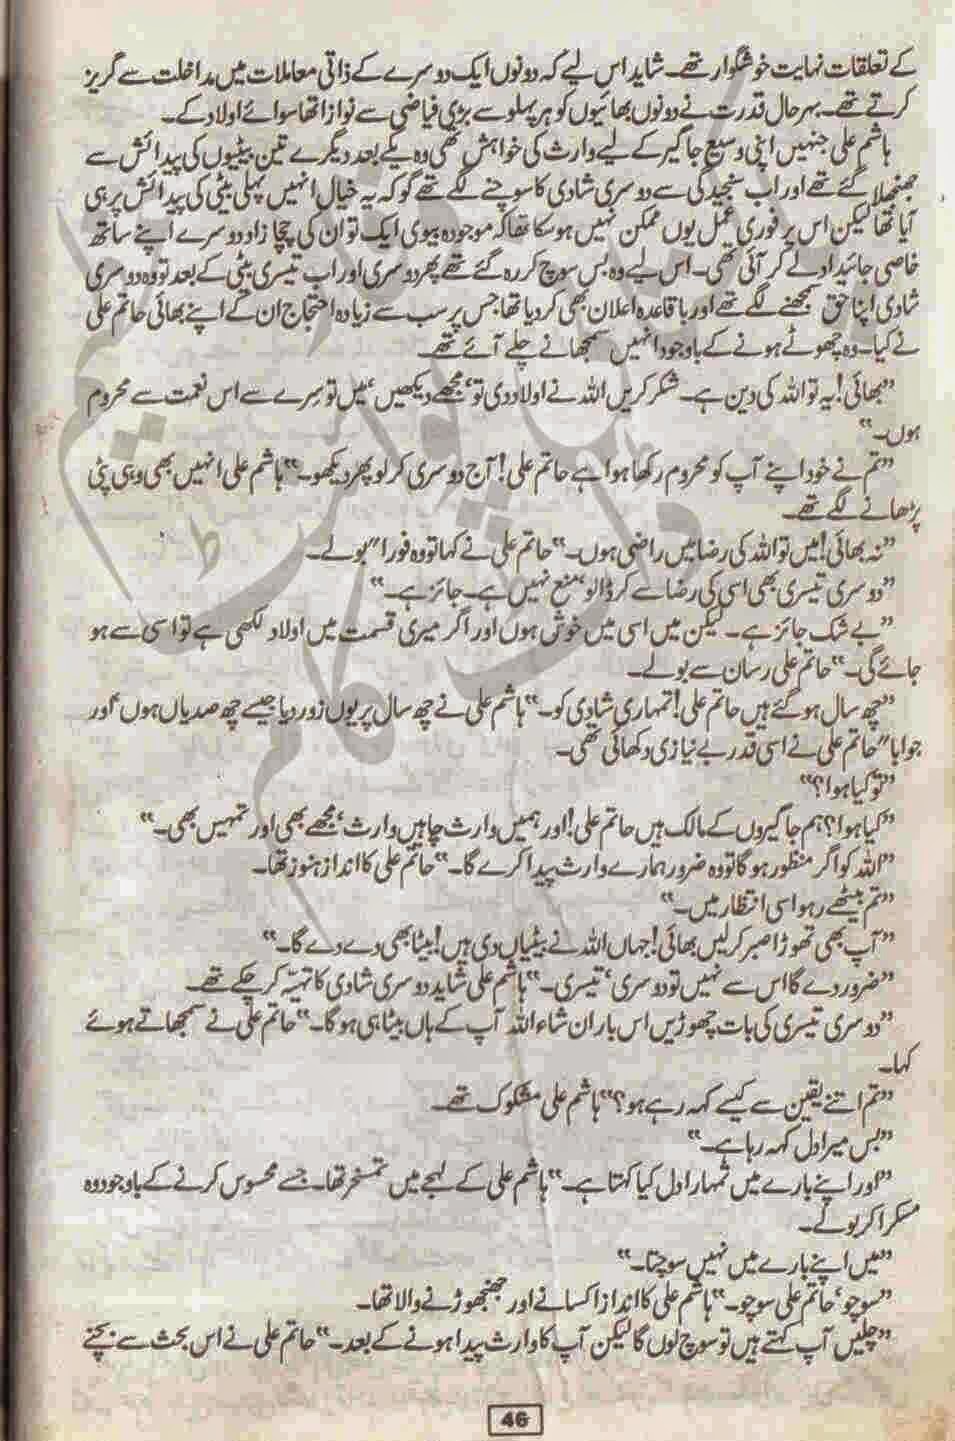 کے تعلقات نہایت خوشگوار تھے۔ شاید اس لیے کہ دونوں ایک دوسرے کے ذاتی معاملات میں مداخلت سے گریز
کرتے تھے۔ بہر حال قدرت نے دونوں بھائیوں کو ہر پہلو سے بڑی فیاضی سے نوازا تھا سوائے اولاد کے۔
ہاشم علی جنہیں اپنی وسیع جاگیر کے لیے وارث کی خواہش تھی وہ یکے بعد دیگرے تین بیٹیوں کی پیدائش سے
جھنجلا گئے تھے اور اب سنجیدگی سے دوسری شادی کا سوچنے لگے تھے گو کہ یہ خیال انہیں پہلی بیٹی کی پیدائش پر ہی
آیا تھا لیکن اس پر فوری عمل یوں ممکن نہیں ہو سکا تھا کہ موجودہ بیوی ایک تو ان کی چچا زاد دوسرے اپنے ساتھ
خاصی جائیداد لے کر آئی تھی۔ اس لیے وہ بس سوچ کر رہ گئے تھے پھر دوسری اور اب تیسری بیٹی کے بعد تو وہ دوسری
شادی اپنا حق سمجھنے لگے تھے اور باقاعدہ اعلان بھی کر دیا تھا جس پر سب سے زیادہ احتجاج ان کے اپنے بھائی حاتم علی
نے کیا۔ وہ چھوٹے ہونے کے باوجود انہیں سمجھانے چلے آئے تھے۔
”بھائی! یہ تو اللہ کی دین ہے۔ شکر کریں اللہ نے اولاد دی تو‘ مجھے دیکھیں‘ میں تو سِرے سے اس نعمت سے محروم
ہوں۔“
”تم نے خود اپنے آپ کو محروم رکھا ہوا ہے حاتم علی! آج دوسری کر لو پھر دیکھو۔“ ہاشم علی انہیں بھی وہی پٹی
پڑھانے لگے تھے۔
”نہ بھائی! میں تو اللہ کی رضا میں راضی ہوں۔“ حاتم علی نے کہا تو وہ فوراً بولے۔
”دوسری تیسری بھی اسی کی رضا سے کر ڈالو‘ منع نہیں ہے۔ جائز ہے۔“
”بے شک جائز ہے۔ لیکن میں اسی میں خوش ہوں اور اگر میری قسمت میں اولاد لکھی ہے تو اسی سے ہو
جائے گی۔“ حاتم علی رسان سے بولے۔
”چھ سال ہو گئے ہیں حاتم علی! تمہاری شادی کو۔“ ہاشم علی نے چھ سال پر یوں زور دیا جیسے چھ صدیاں ہوں‘ اور
جواباً حاتم علی نے اسی قدر بے نیازی دکھائی تھی۔
”تو کیا ہوا؟“
”کیا ہوا؟ ہم جاگیروں کے مالک ہیں حاتم علی! اور ہمیں وارث چاہیں وارث‘ مجھے بھی اور تمہیں بھی۔“
”اللہ کو اگر منظور ہو گا تو وہ ضرور ہمارے وارث پیدا کرے گا۔“ حاتم علی کا انداز ہنوز تھا۔
”تم بیٹھے رہو اسی انتظار میں۔“
”آپ بھی تھوڑا صبر کر لیں بھائی! جہاں اللہ نے بیٹیاں دی ہیں! بیٹا بھی دے دے گا۔“
”ضرور دے گا اس سے نہیں تو دوسری‘ تیسری۔“ ہاشم علی شاید دوسری شادی کا تہیّہ کر چکے تھے۔
”دوسری تیسری کی بات چھوڑیں اس بار ان شاء اللہ آپ کے ہاں بیٹا ہی ہو گا۔“ حاتم علی نے سمجھاتے ہوئے
کہا۔
”تم اتنے یقین سے کیسے کہہ رہے ہو؟“ ہاشم علی مشکوک تھے۔
”بس میرا دل کہہ رہا ہے۔“
”اور اپنے بارے میں تمہارا دل کیا کہتا ہے۔“ ہاشم علی کے لہجے میں تمسخر تھا۔ جسے محسوس کرنے کے باوجود وہ
مسکرا کر بولے۔
”میں اپنے بارے میں نہیں سوچتا۔“
”سوچو‘ حاتم علی سوچو۔“ ہاشم علی کا انداز اکسانے اور جھنجھوڑنے والا تھا۔
”چلیں آپ کہتے ہیں تو سوچ لوں گا لیکن آپ کا وارث پیدا ہونے کے بعد۔“ حاتم علی نے اس بحث سے بچنے
46